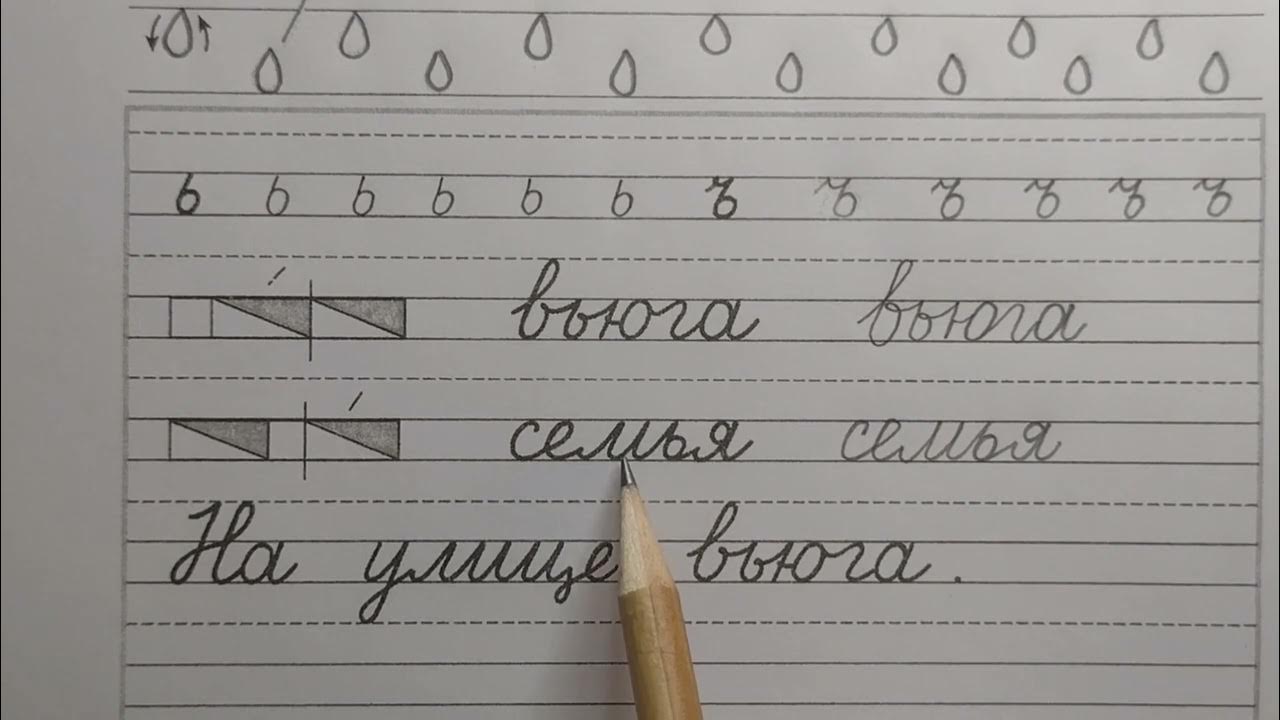 ь ь ь ь ь ь ъ ъ ъ ъ ъ ъ
вьюга вьюга
семья семья
На улице вьюга.